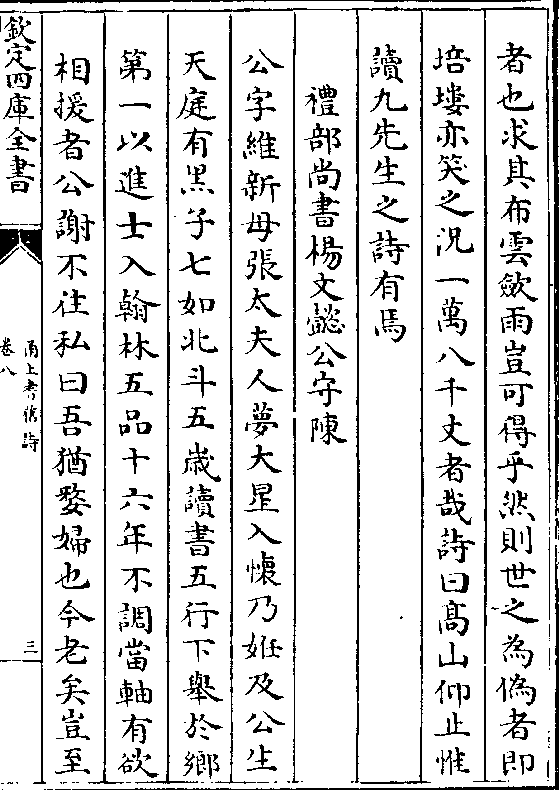 者也求其布雲斂雨豈可得乎然則世之為偽者即
培塿亦笑之況一萬八千丈者哉詩曰高山仰止惟
讀九先生之詩有焉
禮部尚書楊文懿公守陳
公字維新母張太夫人夢大星入懷乃姙及公生
天庭有黒子七如北斗五歲讀書五行下舉於鄉
第一以進士入翰林五品十六年不調當軸有欲
相援者公謝不往私曰吾猶嫠婦也今老矣豈至
欽定四庫全書
甬上耆舊詩
卷八
三